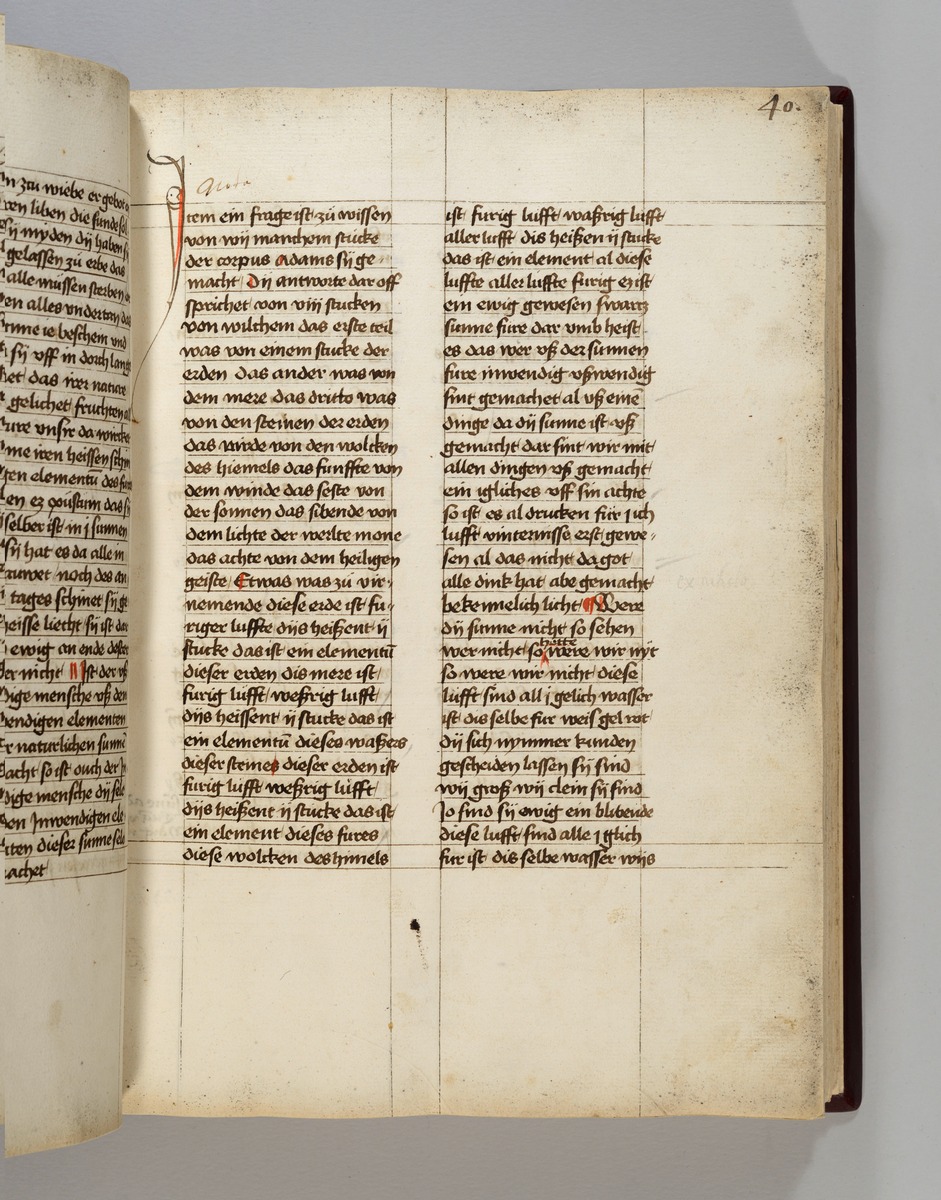 n zu wiebe er gebot
ren liben die sunde sol
sij myden dij haben
gelassen zu erbe das
alle müssen sterben
en alles vndertan
sunne ie beschem vnd
sij vff in dorch lang
et das irer nature
gelichet fruchten
ure vnsir da wircket
me iren heissen schin
gen elementu des fur
en ex positum das
selber ist in j sunnen
sij hat es da alle in
ruwet noch des an
tages schinet sij
heisse liecht sij ist der
ewig an ende
der nicht Ist der vß
dige mensche vß den
endigen elementen
r naturlichen sunne
acht so ist ouch der
dige mensche dij sele
von Inwendigen ele
ten dieser sunne sele
achet
40.
Nota
Item ein frage ist zü wissen
von wij manchem stücke
der corpus Adams sij ge
macht Dij antworte dar off
sprichet von viij stucken
von wilchem das erste teil
was von einem stucke der
erden das ander was von
dem mere das dritto was
von den steinen der erden
das virde von den wolcken
des hiemels das funffte von
dem winde das seste von
der sonnen das sibende von
dem lichte der werlte mone
das achte von dem heiligen
geiste Etwas was zü vir
nemende diese erde ist fu
riger luffte dijs heißent ij
stucke das ist ein elementū
dieser erden dis mere ist
furig lufft weßrig lufft
dijs heissent ij stucke das ist
ein elementū dieses waßers
dieser steines dieser erden ist
furig lufft weßrig lufft
dijs heißent ij stucke das ist
ein element dieses fures
diese wolcken des himels
ist furig lufft waßrig lufft
aller lufft dis heißen ij stucke
das ist ein element al diese
luffte aller luffte furig ez ist
ein ewig gewesen swartz
sunne fure dar vmb heist
es das wer vß der sunnen
fure inwendig vßwendig
sint gemachet al vß eine
dinge da dij sunne ist vß
gemacht dar sint wir mit
allen dingen vß gemacht
ein igliches vff sin achte
so ist es al drucken für ich
lufft vinternisse erst gewe
sen al das nicht da got
alle dink hat abe gemacht
bekennelich licht Were
dij sunne nicht so sehen
hotte
wer nicht so were wir nyt
so were wir nicht diese
lüfft sind all j gelich wasser
ist dis selbe fur weis gel rot
dij sich nymmer kunden
gescheiden lassen sij sind
wij groß wij clein sij sind
Jo sind sij ewig ein blibende
diese lufft sind alle j glich
fur ist dis selbe wasser wijs